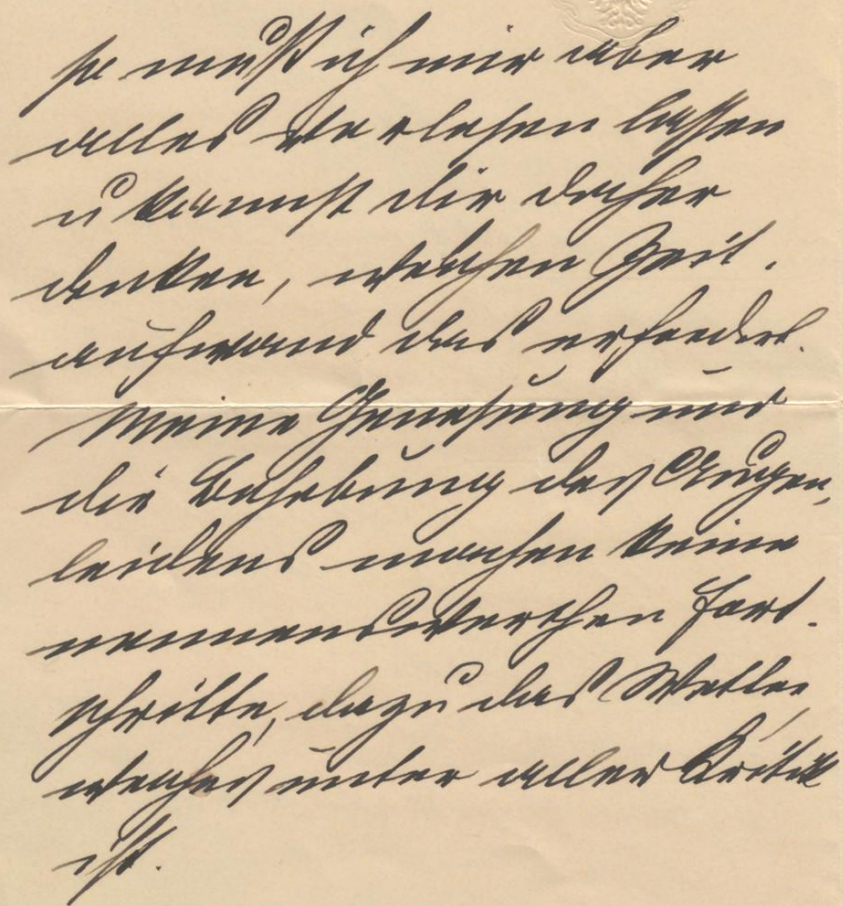 so muß ich mir aber
alles vorlesen lassen
u kannst dir daher
denken, welchen Zeit-
aufwand das erfordert.
Meine Genesung und
die Behebung des Augen-
leidens machen keine
nennenswerthen Fort-
schritte, dazu das Wetter,
welches unter aller Kritik
ist.